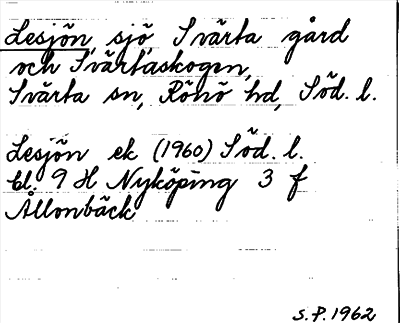 Lesjön, sjö, Svärta gård
och Svärtaskogen,
Svärta sn, Rönö hd, Söd. l.
Lesjön ek (1960) Söd. l.
bl. 9 H Nyköping 3 f
Ållonbäck
S.P. 1962